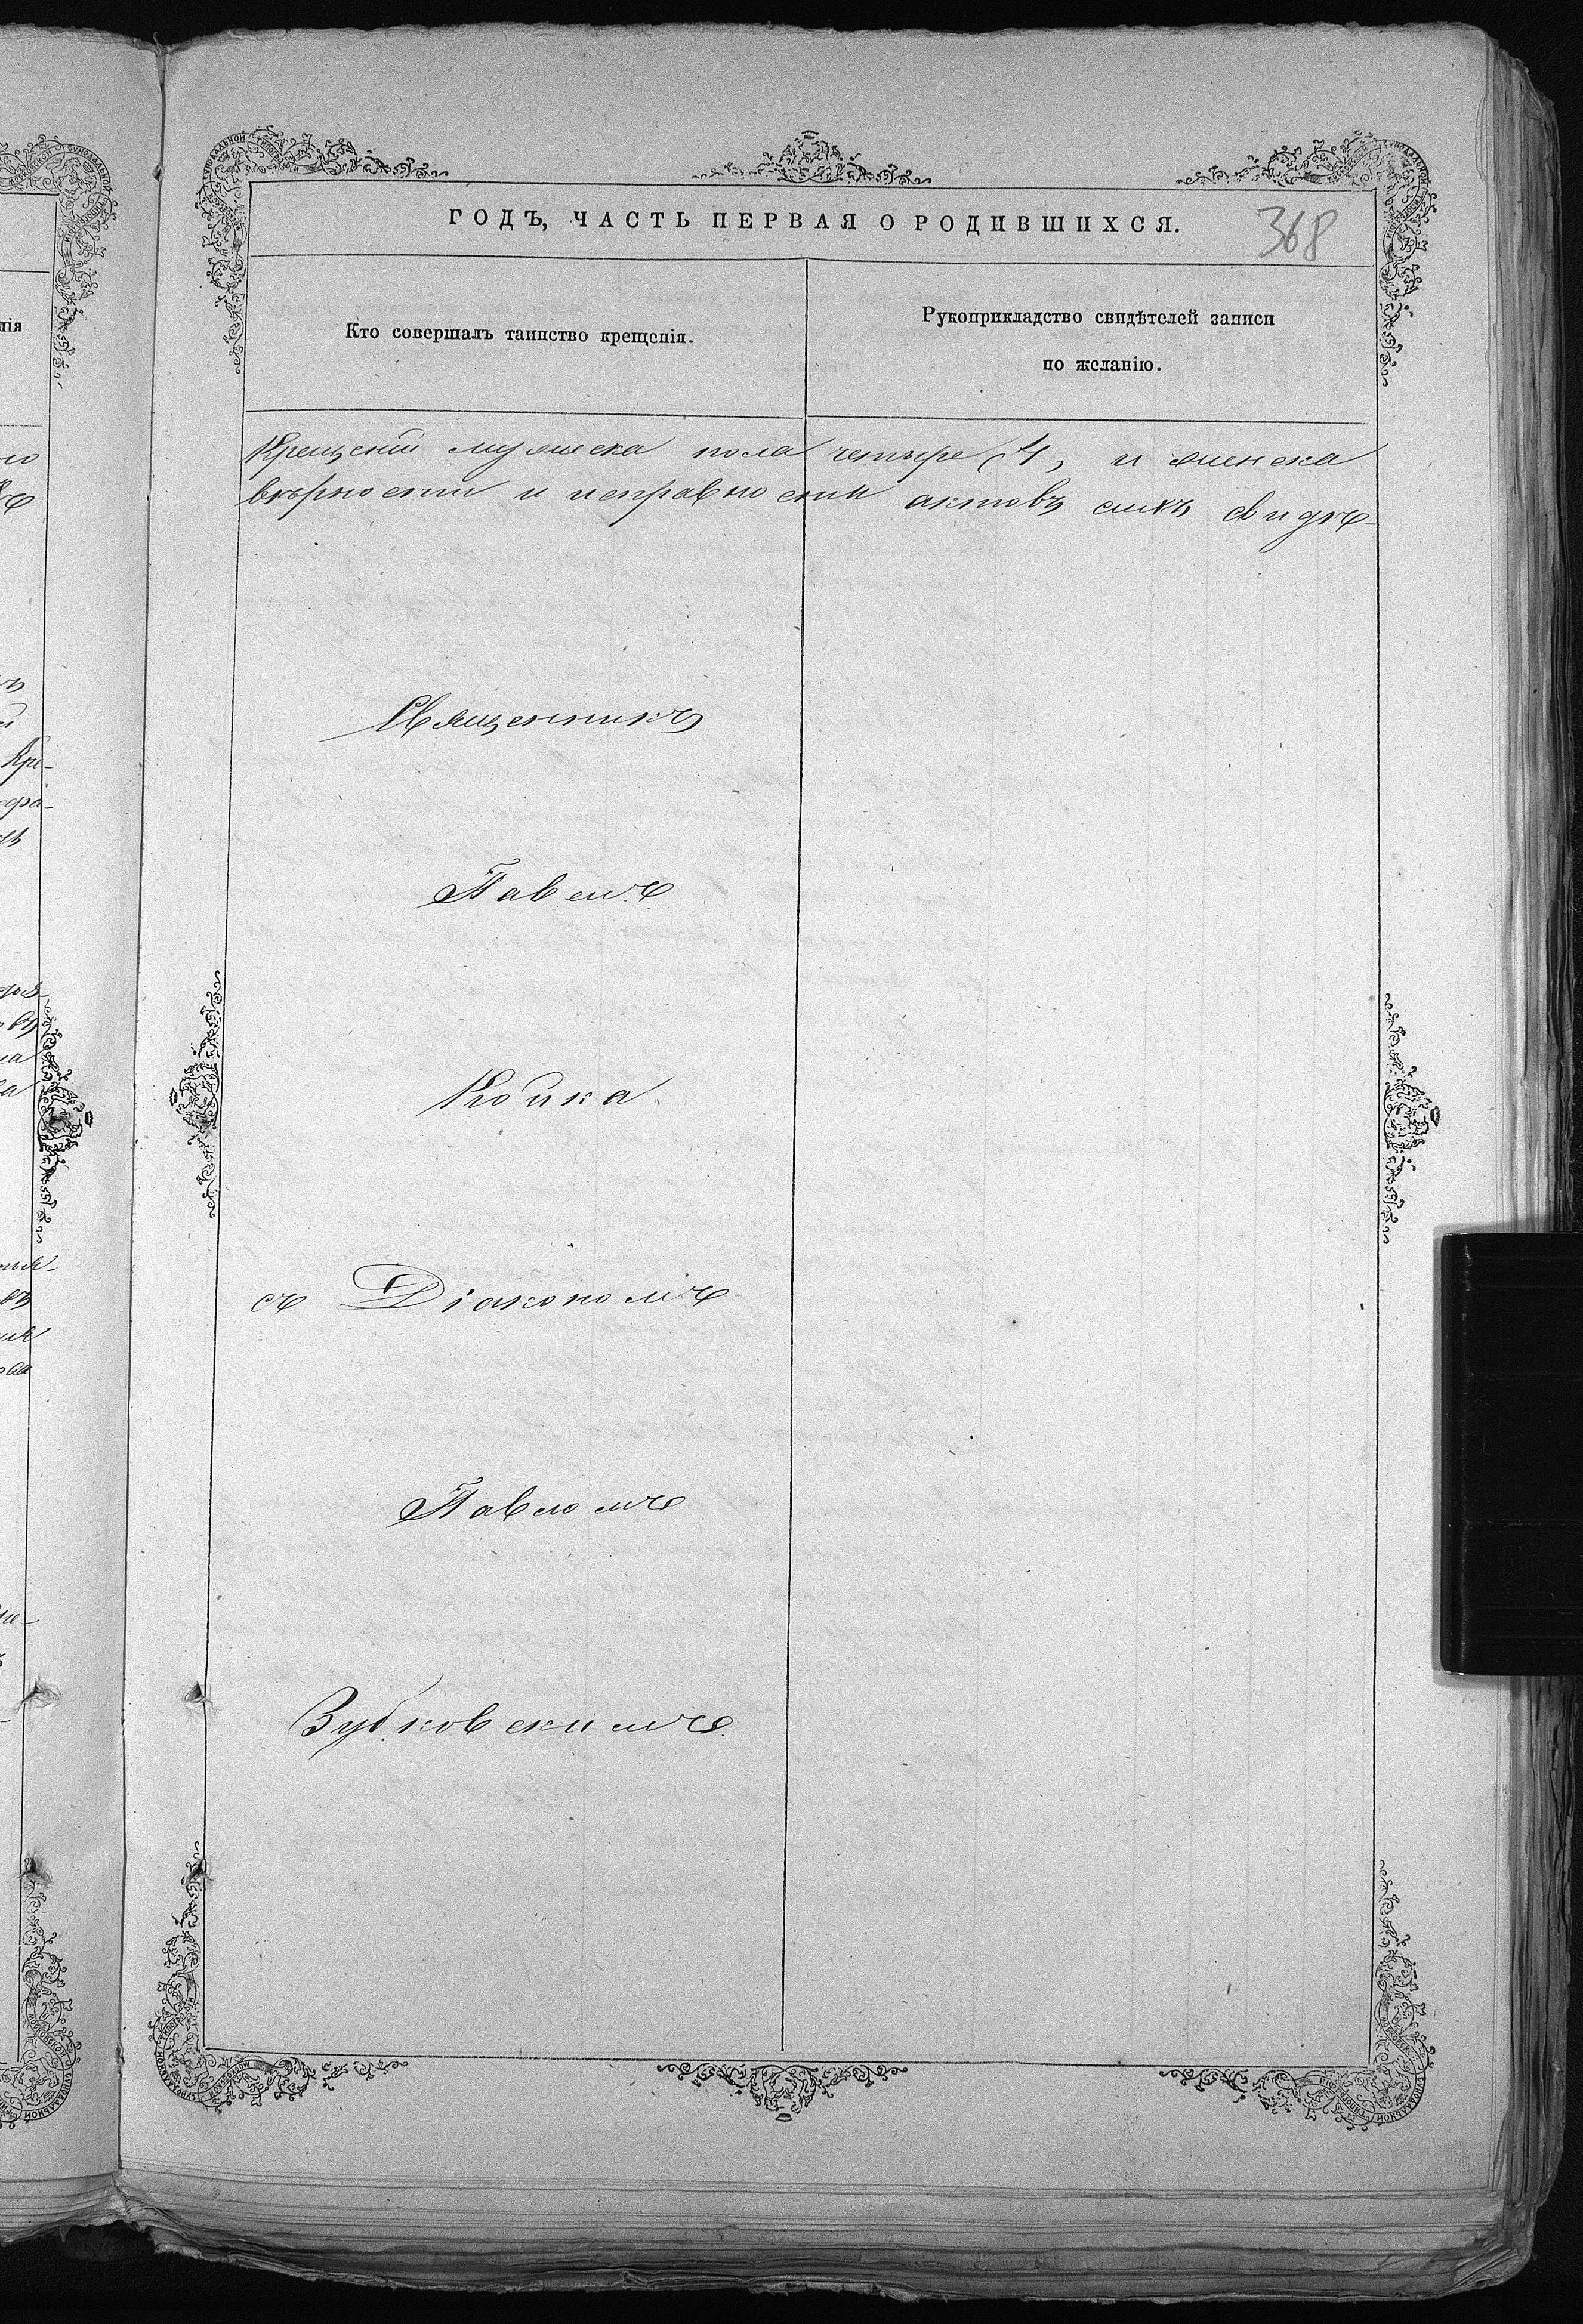 ГОДЪ, ЧАСТЬ ПЕРВАЯ О РОДИВШИХСЯ.
368
Кто совершалъ таинство крещенія.
Рукоприкладство свидѣтелей записи
по желанію.
Крещеній мужеска пола четыре (4, и женска
вѣрности и исправности актовъ сихъ свидѣ-
Священникъ
Павелъ
Койка
съ Діакономъ
Павломъ
Зубковскимъ